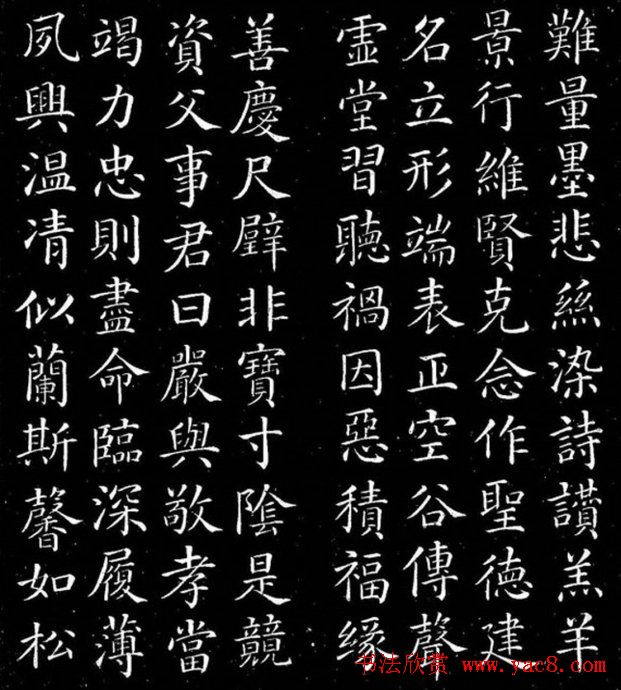 難量墨悲絲染詩讃羔羊
景行維賢克念作聖德建
名立形端表正空谷傳聲
虛堂習聽禍因惡積福緣
善慶尺璧非寶寸陰是競
資父事君曰嚴與敬孝當
竭力忠則盡命臨深履薄
夙興温凊似蘭斯馨如松
书法欣赏 www.yac8.com